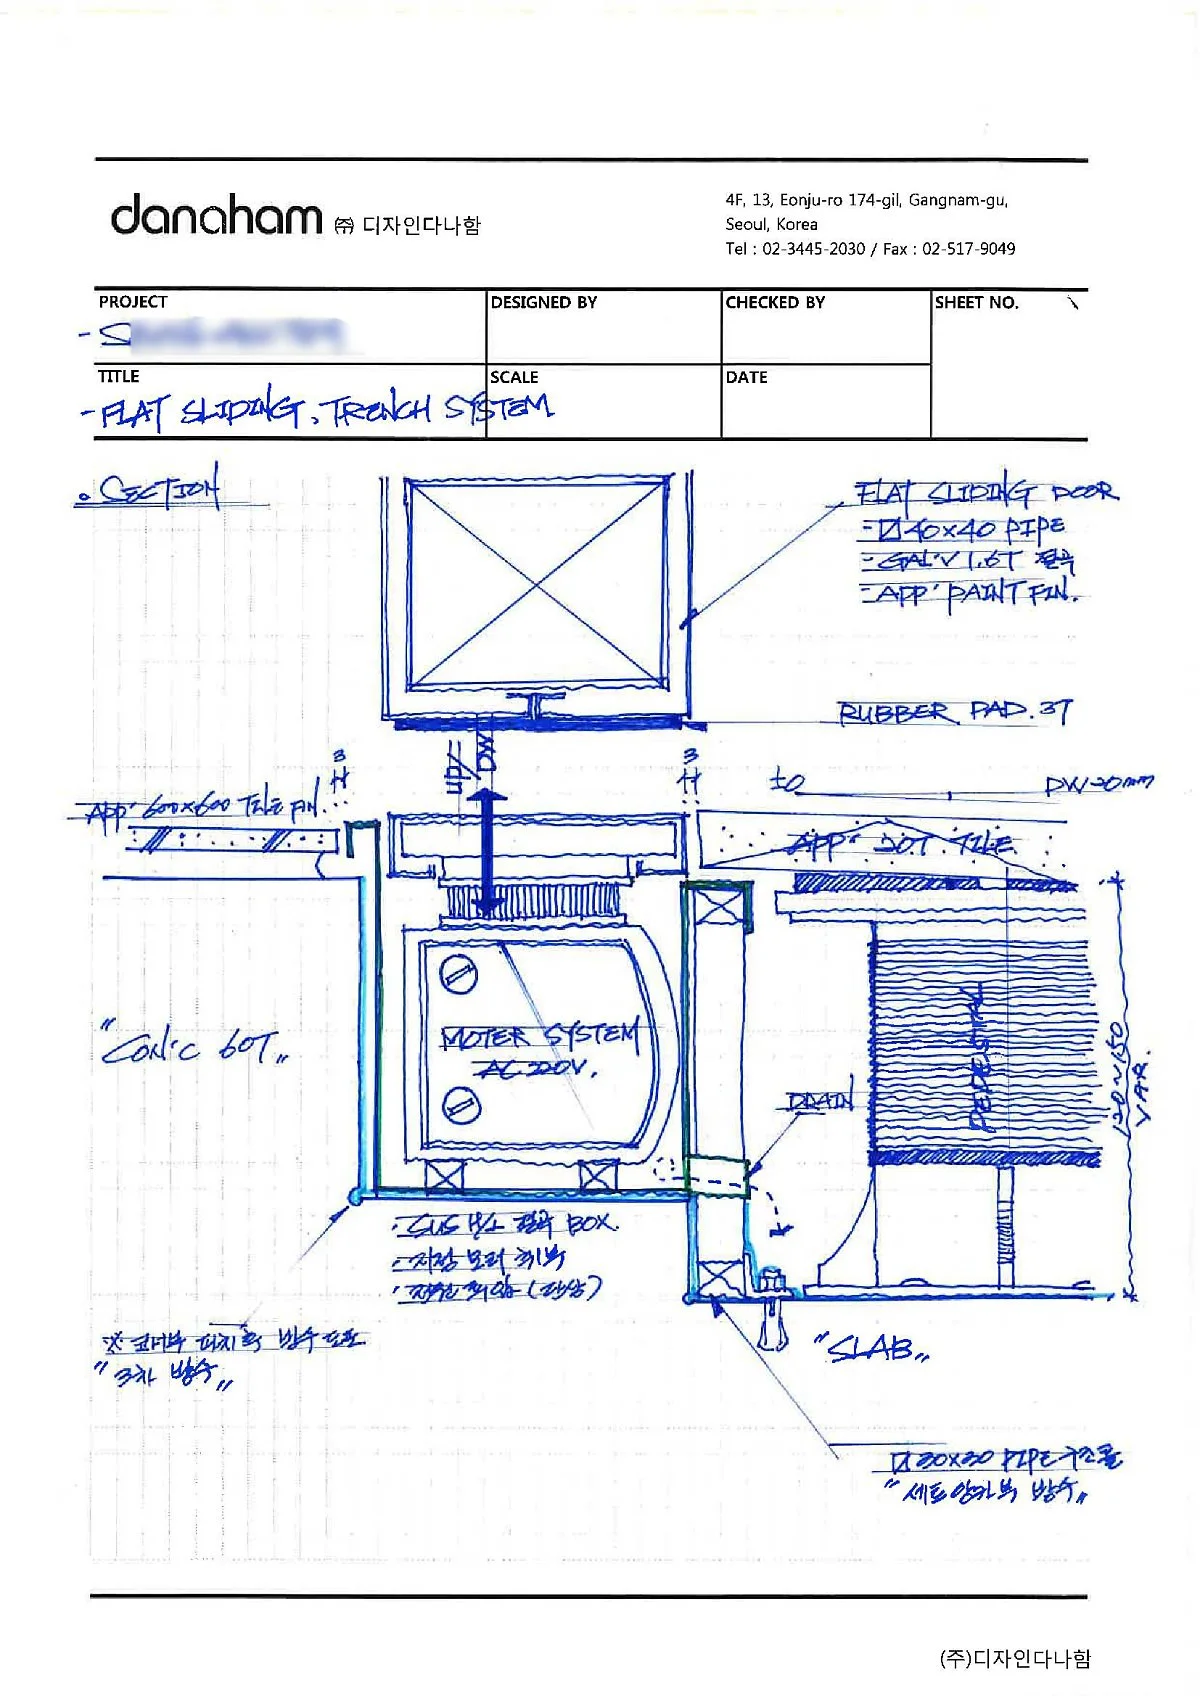 danaham ㈜ 디자인다나함
4F, 13, Eonju-ro 174-gil, Gangnam-gu,
Seoul, Korea
Tel : 02-3445-2030 / Fax : 02-517-9049
PROJECT
DESIGNED BY
CHECKED BY
SHEET NO.
- S
TITLE
SCALE
DATE
- FLAT SLIDING, TRENCH SYSTEM
SECTION
FLAT SLIDING DOOR
- 40x40 PIPE
- GAL'V 1.6T 절곡
- APP' PAINT FIN.
RUBBER PAD. 3T
UP/DW
3
3
to
DW20mm
APP' 600x600 TILE FIN.
APP' DOT. TILE.
"CON'C 60T"
MOTER SYSTEM
AC 220V.
DRAIN
PEDESTAL
120~150
VAR.
· SUS H/L 절곡 BOX.
※ 코너부 방수 도포
"3차 방수"
"SLAB"
30x30 PIPE 구조틀
"세트앙카부 방수"
(주)디자인다나함